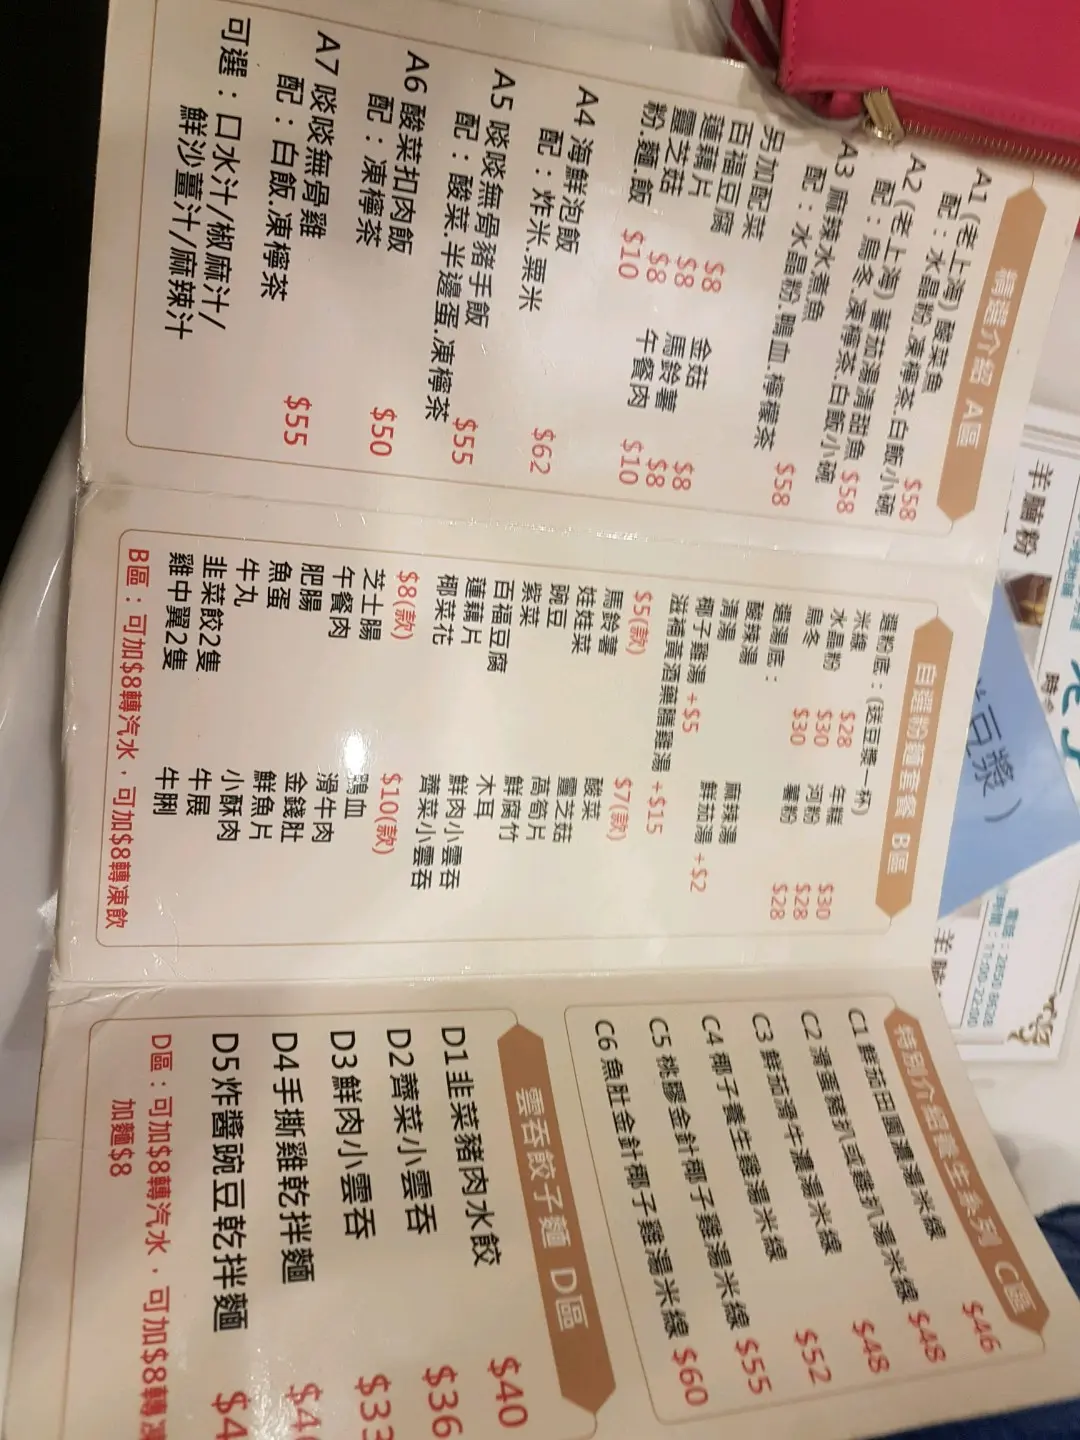 精選介紹 A區
A1 (老上海) 酸菜魚 $58
配：水晶粉.凍檸茶.白飯小碗
A2 (老上海) 蕃茄湯清甜魚 $58
配：烏冬.凍檸茶.白飯小碗
A3 麻辣水煮魚 $58
配：水晶粉.鴨血.檸檬茶
另加配菜
百福豆腐 $8 金菇 $8
蓮藕片 $8 馬鈴薯 $8
靈芝菇 $8 午餐肉 $10
粉.麵.飯 $10
A4 海鮮泡飯 $62
配：炸米.粟米
A5 啖啖無骨豬手飯 $55
配：酸菜.半邊蛋.凍檸茶
A6 酸菜扣肉飯 $50
配：凍檸茶
A7 啖啖無骨雞 $55
配：白飯.凍檸茶
可選：口水汁/椒麻汁/
鮮沙薑汁/麻辣汁
自選粉麵套餐 B區
選粉底：(送豆漿一杯)
米線 $28 年糕 $30
水晶粉 $30 河粉 $28
烏冬 $30 薯粉 $28
選湯底：
酸辣湯 麻辣湯
清湯 鮮茄湯 +$2
椰子雞湯 +$5
滋補黃酒藥膳雞湯 +$15
$5(款) $7(款)
馬鈴薯 酸菜
娃娃菜 靈芝菇
豌豆 萵筍片
紫菜 鮮腐竹
百福豆腐 木耳
蓮藕片 鮮肉小雲吞
椰菜花 薺菜小雲吞
$8(款) $10(款)
芝士腸 鴨血
午餐肉 滑牛肉
肥腸 金錢肚
魚蛋 鮮魚片
牛丸 小酥肉
韭菜餃2隻 牛展
雞中翼2隻 牛脷
B區：可加$8轉汽水，可加$8轉凍飲
特別介紹養生系列 C區
C1 鮮茄田園濃湯米線 $46
C2 滑蛋豬扒或雞扒湯米線 $48
C3 鮮茄滑牛濃湯米線 $48
C4 椰子養生雞湯米線 $52
C5 桃膠金針椰子雞湯米線 $55
C6 魚肚金針椰子雞湯米線 $60
雲吞餃子麵 D區
D1 韭菜豬肉水餃 $40
D2 薺菜小雲吞 $36
D3 鮮肉小雲吞 $33
D4 手撕雞乾拌麵 $4
D5 炸醬豌豆乾拌麵 $4
D區：可加$8轉汽水，可加$8轉凍
加麵$8
羊腩粉
豆漿)
電話：2850 8628
11:00-22:00
羊腩